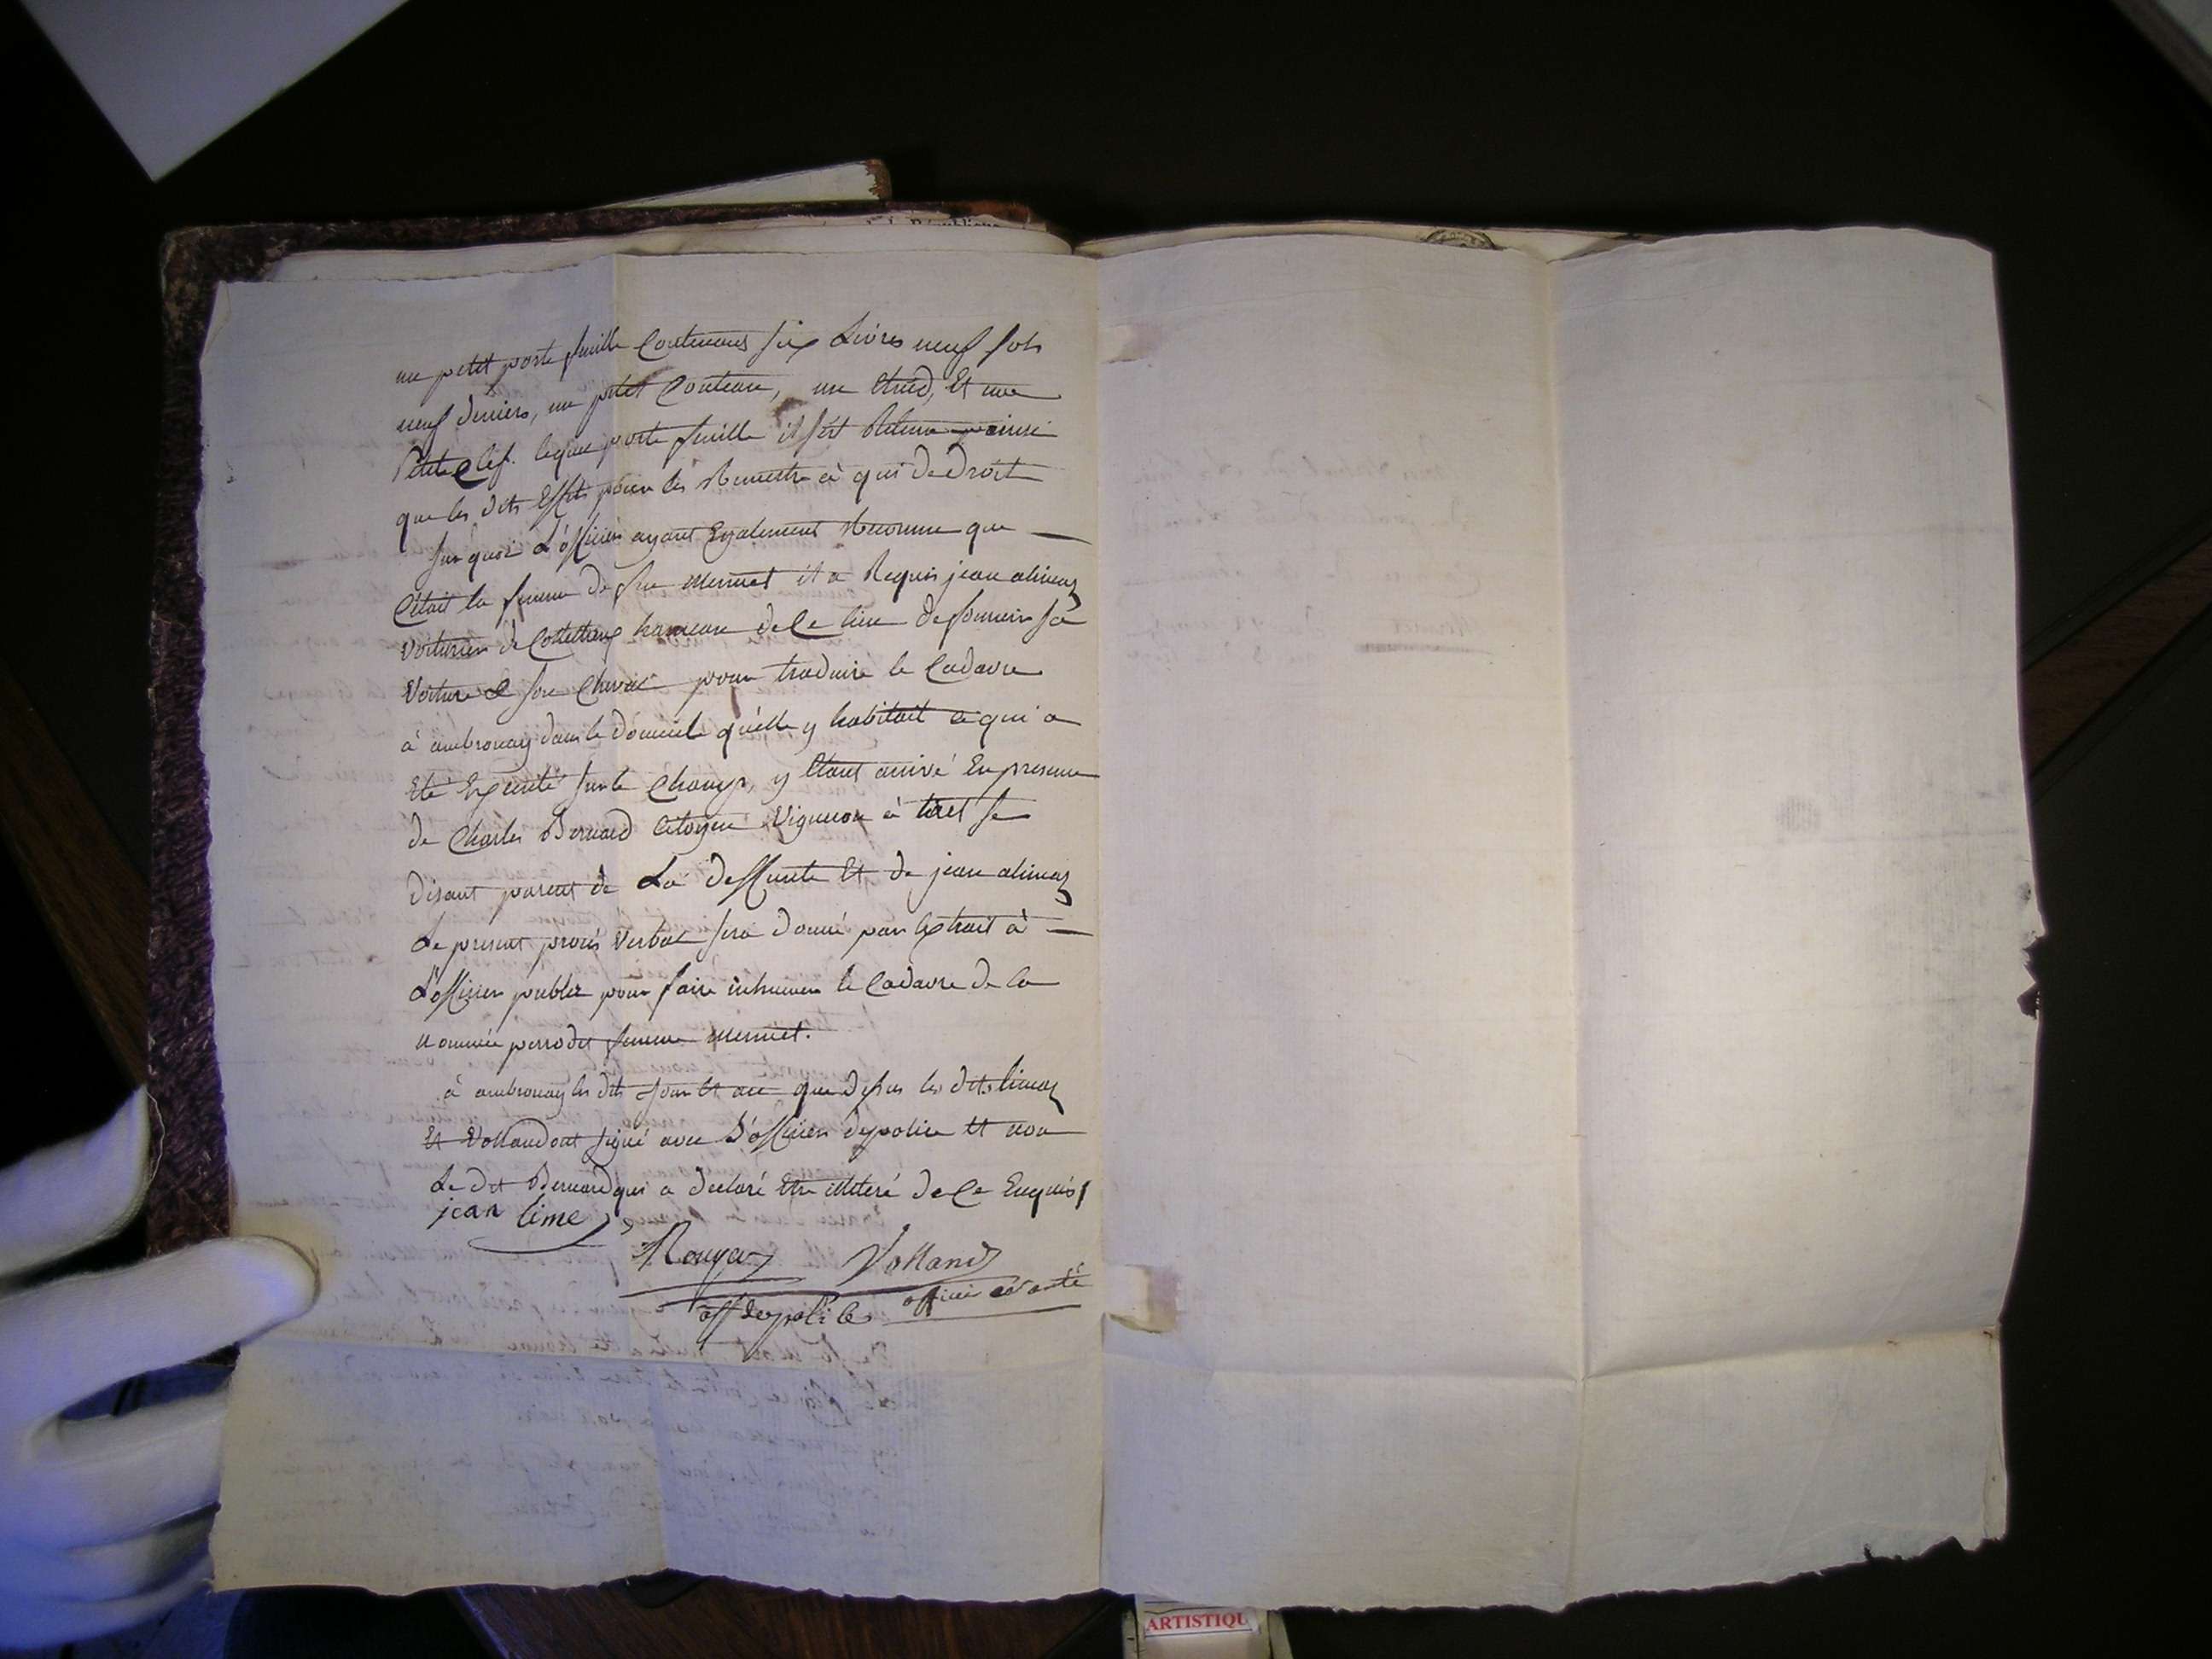 un petit porte feuille Contenans six Livres neuf sols
neuf deniers, un petit Couteau, un Etuid, Et une
Petite Clef. lequel porte feuille il s'est Retenu ainsi
que les dits Effets pour les Remettre à qui de Droit
sur quoi L'officier ayant Egalement Reconnu que
C'était la femme de feu mermet il a Requis jean alimez
Voiturier de hameau de Ce lieu de fournir sa
Voiture & son Cheval pour traduire le Cadavre
à ambronay dans le domicile qu'elle y habitait ce qui a
Eté Executé sur le Champ, y Etant arrivé En presence
de Charles Bernard Citoyen Vigneron à tiret se
disant parent de La deffunte Et de jean alimez
Le present procés Verbal sera donné par Extrait à
L'officier public pour faire inhumer le Cadavre de la
nommée perrodet femme mermet.
à ambronay les dits jour Et an que dessus les dits limez
Et Volland ont signé avec L'officier de police Et non
Le dit Bernard qui a declaré Etre illiteré de Ce Enquis
jean lime
Rouyer Volland
off de police officier de santé
ARTISTIQU